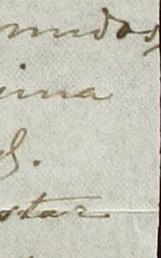 mudos,
ima
S.
star